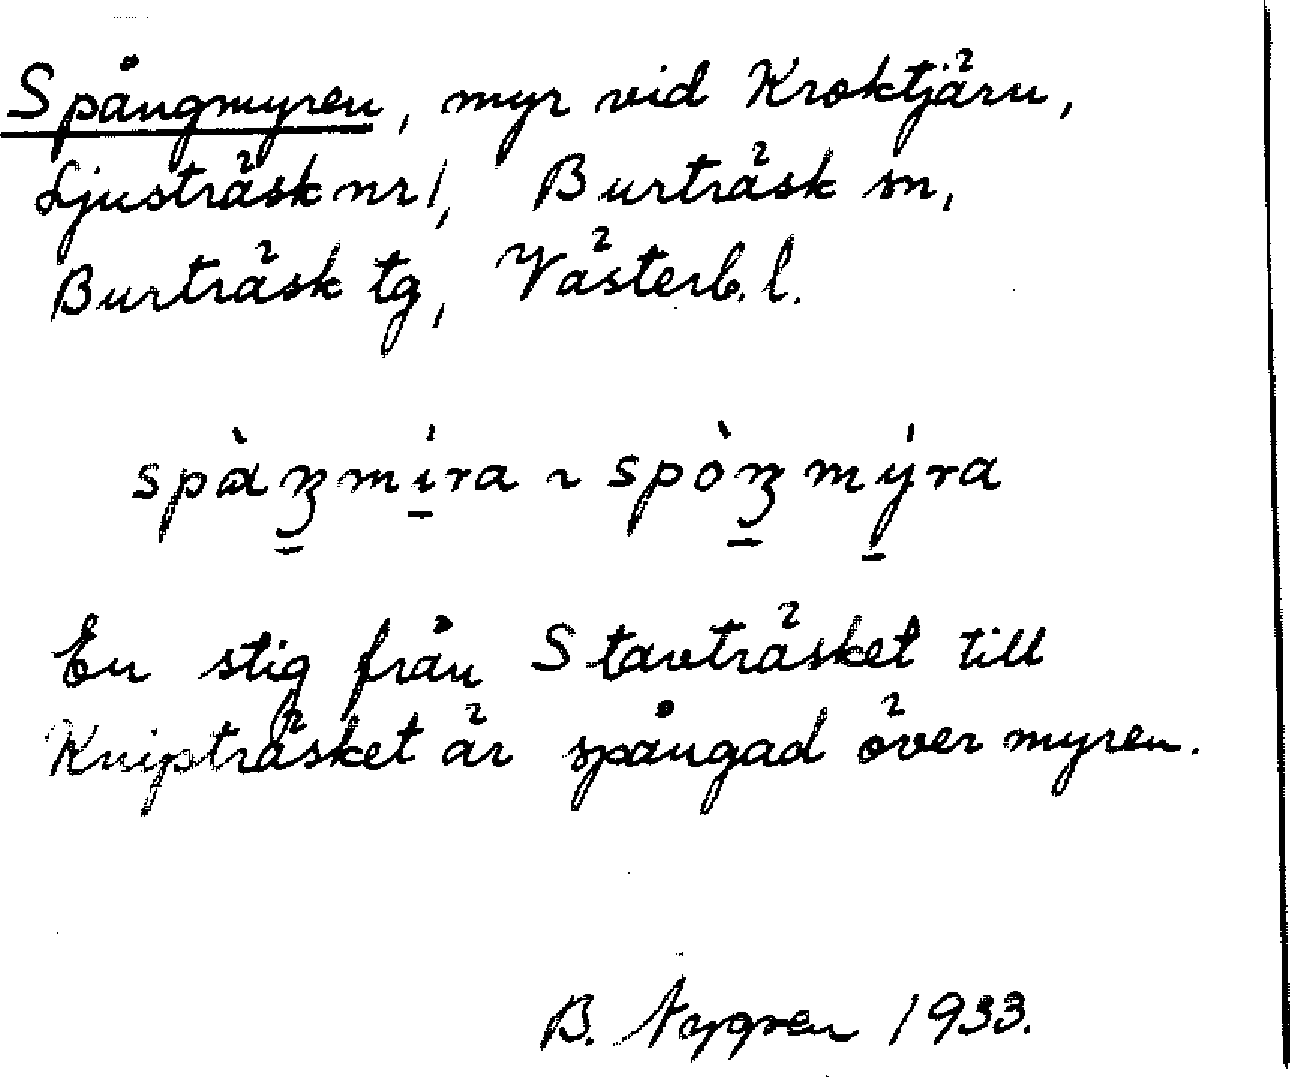 Spångmyren, myr vid Kroktjärn,
Ljusträsk nr 1, Burträsk sn,
Burträsk tg, Västerb. l.
spàŋmíra ~ spòŋmýra
En stig från Stavträsket till
Knipträsket är spångad över myren.
B. Nygren 1933.